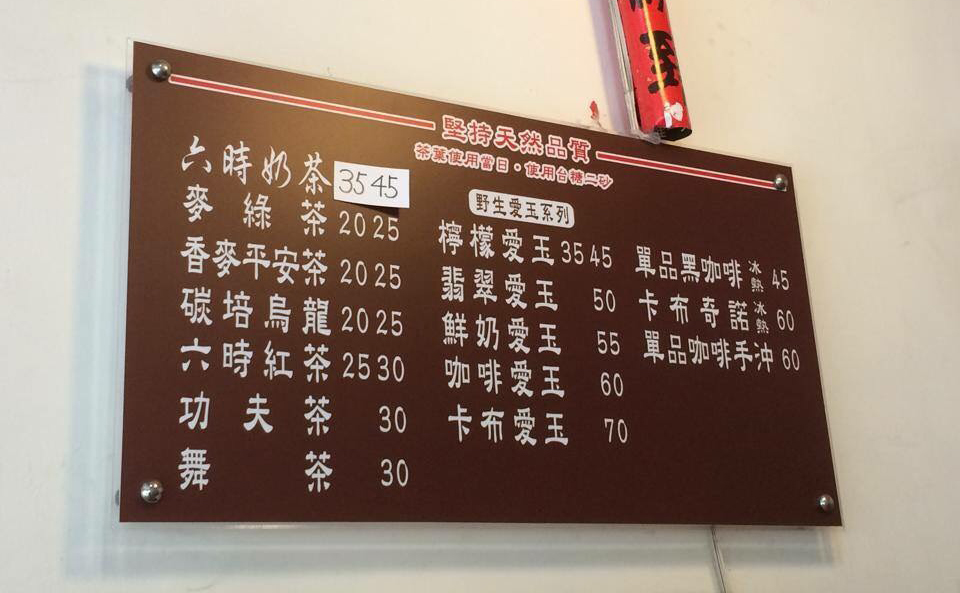 堅持天然品質
茶葉使用當日·使用台糖二砂
六時奶茶 35 45
麥綠茶 20 25
香麥平安茶 20 25
碳培烏龍 20 25
六時紅茶 25 30
功夫茶 30
舞茶 30
野生愛玉系列
檸檬愛玉 35 45
翡翠愛玉 50
鮮奶愛玉 55
咖啡愛玉 60
卡布愛玉 70
單品黑咖啡 冰熱 45
卡布奇諾 冰熱 60
單品咖啡手沖 60